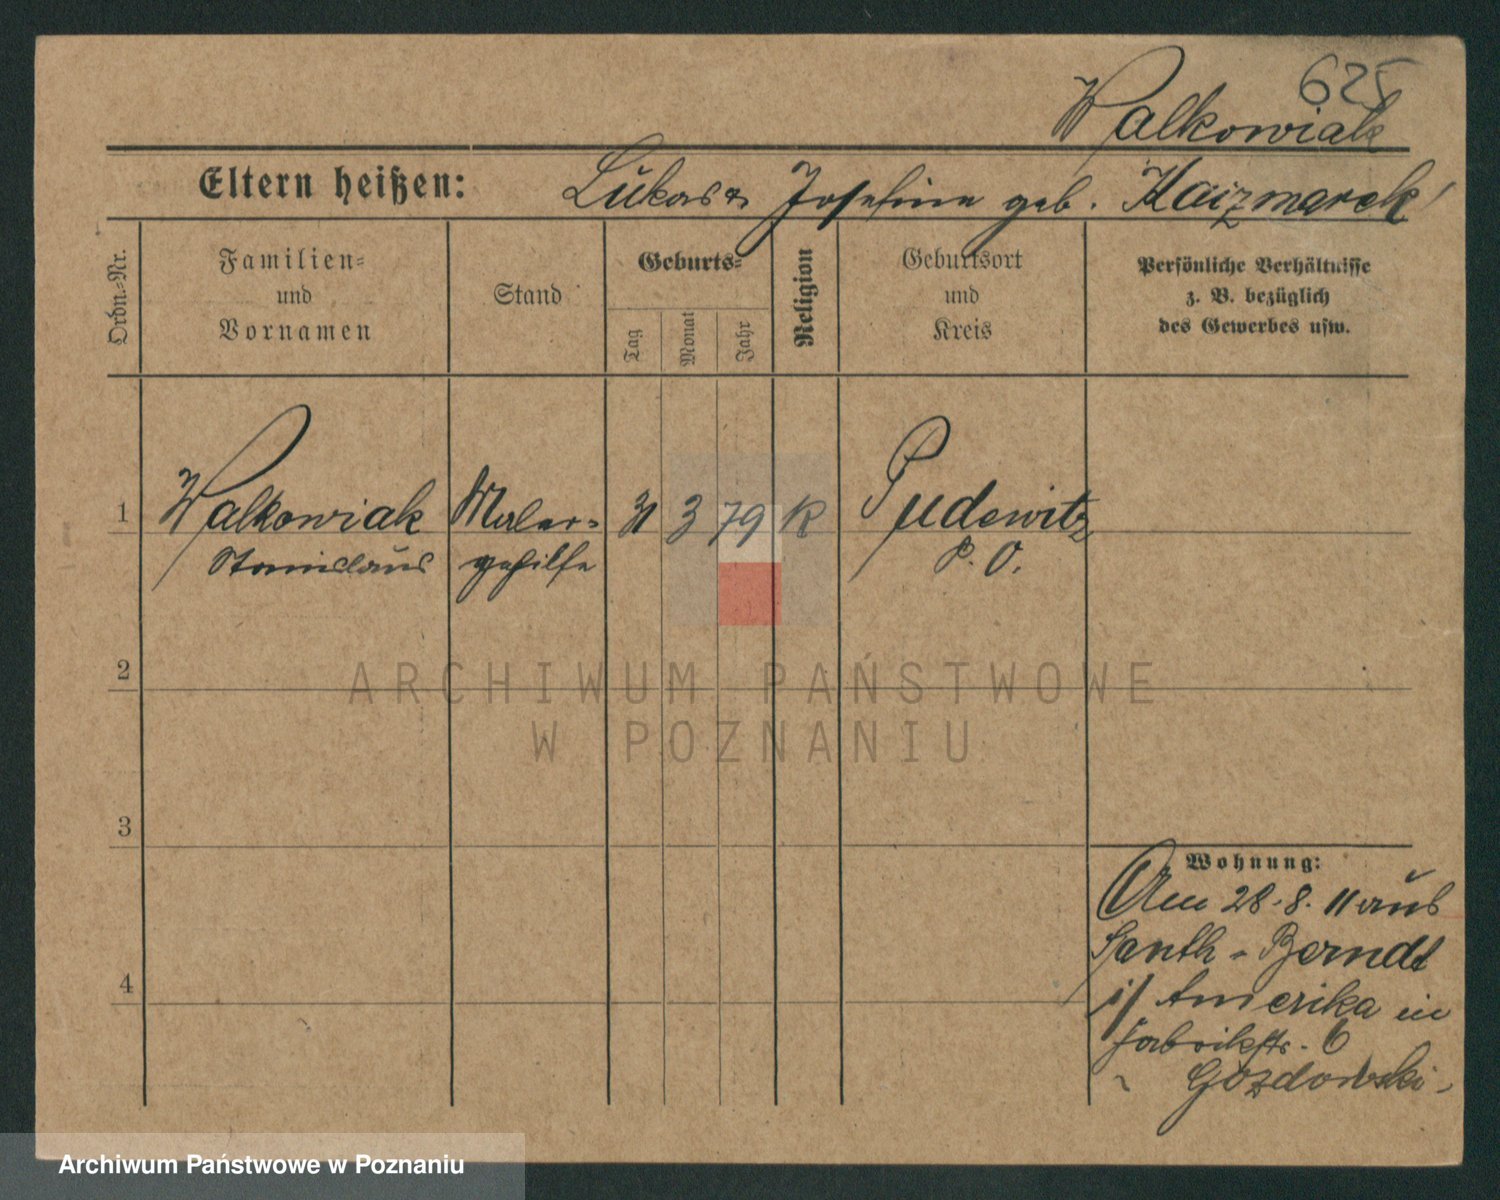 625
Walkowiak
Eltern heißen: Lukas u. Josefine geb. Kaizmarek
Ordn.-Nr.
Familien-
und
Vornamen
Stand
Geburts-
Tag
Monat
Jahr
Religion
Geburtsort
und
Kreis
Persönliche Verhältnisse
z. B. bezüglich
des Gewerbes usw.
1 Walkowiak Maler- 31 3 79 K Pudewitz
Stanislaus gehilfe P. O.
2
3
4
Wohnung:
Am 28.8.11 aus
South-Bemdt
i/ Amerika in
Fabrikstr. 6
Gozdowski
ARCHIWUM PAŃSTWOWE
W POZNANIU
Archiwum Państwowe w Poznaniu